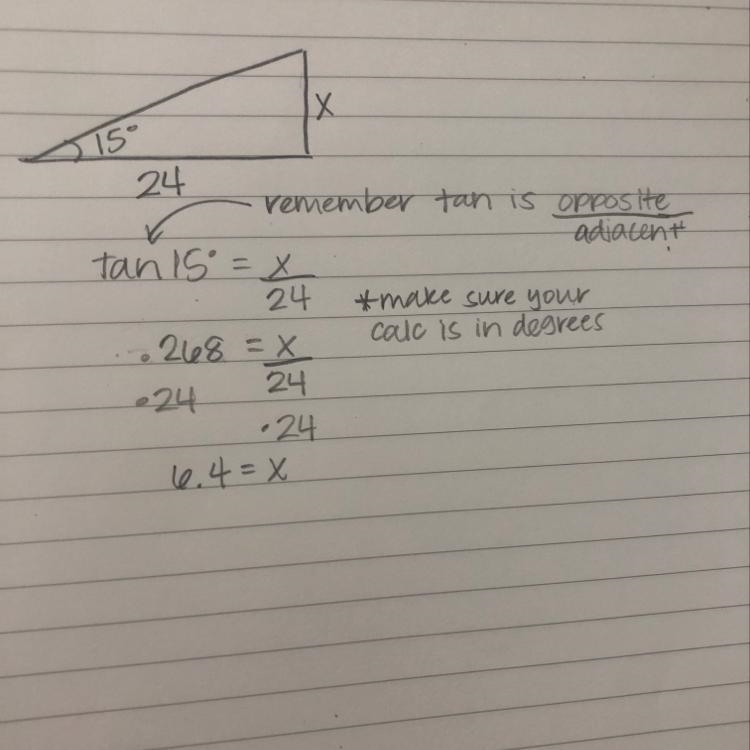 15°
x
24
remember tan is opposite
adjacent
tan 15° = x
24
*make sure your
calc is in degrees
.268 = x
24
•24
•24
6.4 = x